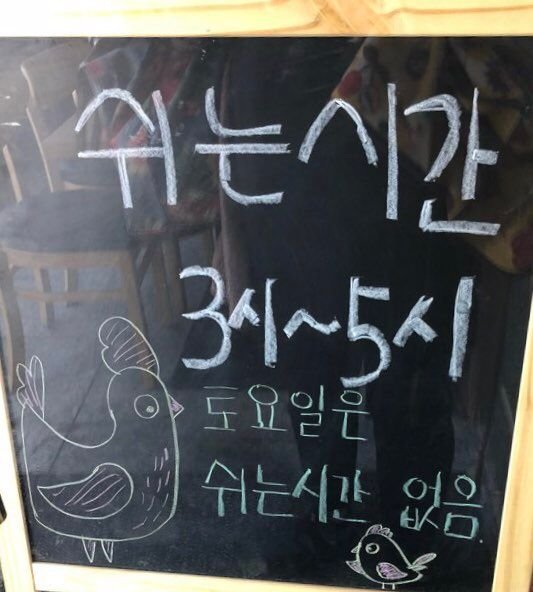 쉬는시간
3시~5시
토요일은
쉬는시간 없음.